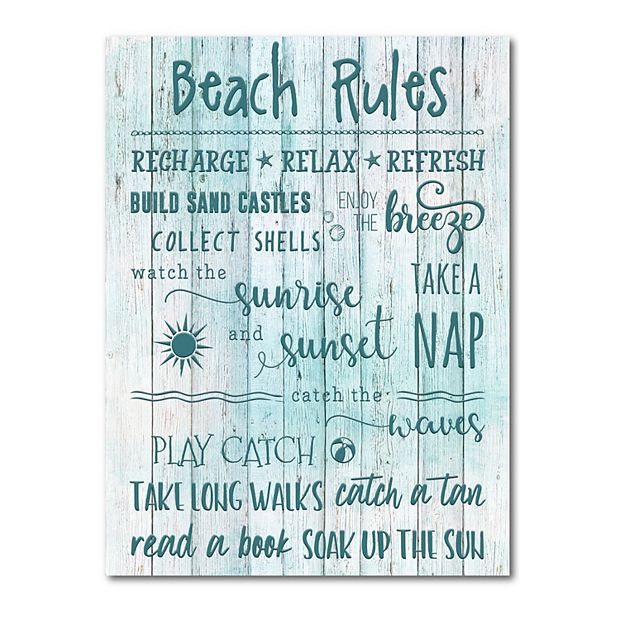 Beach Rules
RECHARGE ★ RELAX ★ REFRESH
BUILD SAND CASTLES
ENJOY
THE breeze
COLLECT SHELLS
watch the
sunrise
and
sunset
TAKE A
NAP
catch the
waves
PLAY CATCH
TAKE LONG WALKS catch a tan
read a book SOAK UP THE SUN